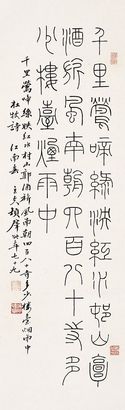 千里鶯啼綠映紅水邨山郭
酒旂風南朝四百八十寺多
少樓臺煙雨中
千里鶯啼綠映紅水村山郭酒旂風南朝四百八十寺多少樓臺烟雨中
杜牧詩 江南春 年七十九